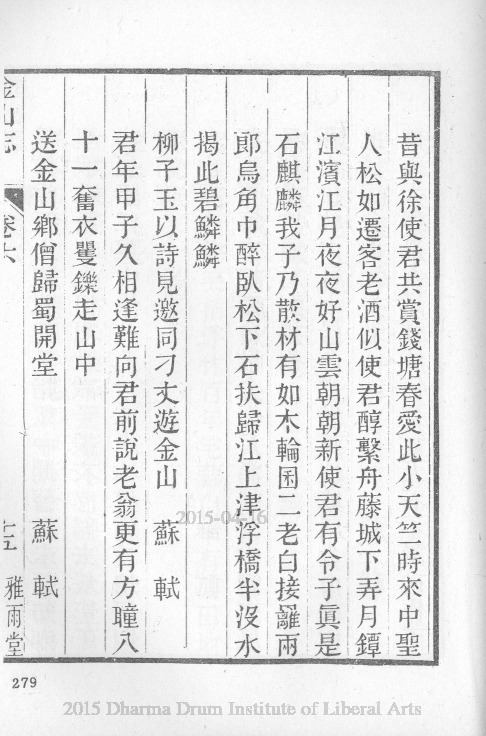 昔與徐使君共賞錢塘春愛此小天竺時來中聖
人松如遷客老酒似使君醇繫舟藤城下弄月鐔
江濱江月夜夜好山雲朝朝新使君有令子眞是
石麒麟我子乃散材有如木輪囷二老白接䍦兩
郎烏角巾醉臥松下石扶歸江上津浮橋半沒水
揭此碧鱗鱗
柳子玉以詩見邀同刁丈遊金山 蘇軾
君年甲子久相逢難向君前說老翁更有方瞳八
十一奮衣矍鑠走山中
送金山鄉僧歸蜀開堂 蘇軾
金山志 卷六 十五 雅雨堂
279
2015-04-16
2015 Dharma Drum Institute of Liberal Arts